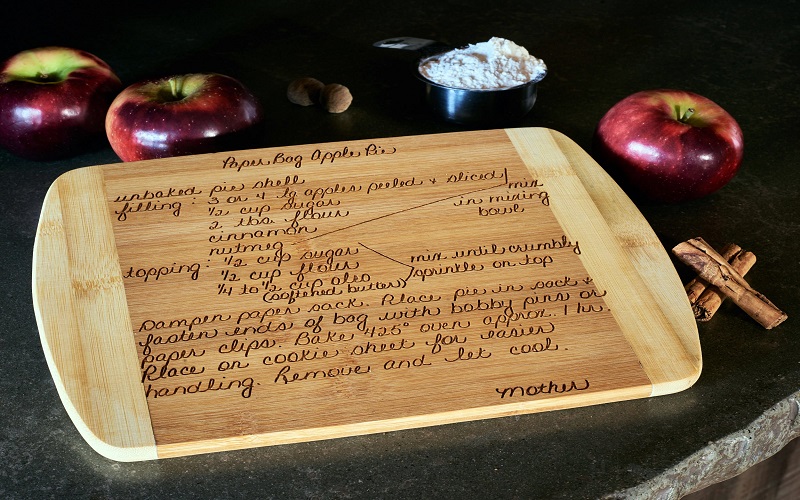 Paper Bag Apple Pie
unbaked pie shell
filling: 3 or 4 lg apples peeled & sliced
½ cup sugar
2 tbs. flour
cinnamon
nutmeg
mix
in mixing
bowl
topping: ½ cup sugar
½ cup flour
¼ to ½ cup oleo
(softened butter)
mix until crumbly
sprinkle on top
Dampen paper sack. Place pie in sack &
fasten ends of bag with bobby pins or
paper clips. Bake 425° oven approx. 1 hr.
Place on cookie sheet for easier
handling. Remove and let cool.
Mother